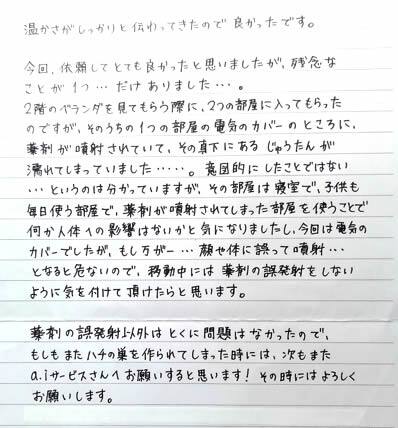 温かさがしっかりと伝わってきたので良かったです。
今回、依頼してとても良かったと思いましたが、残念な
ことが1つ…だけありました…。
2階のベランダを見てもらう際に、2つの部屋に入ってもらった
のですが、そのうちの1つの部屋の電気のカバーのところに、
薬剤が噴射されていて、その真下にあるじゅうたんが
濡れてしまっていました……。意図的にしたことではない
…というのは分かっていますが、その部屋は寝室で、子供も
毎日使う部屋で、薬剤が噴射されてしまった部屋を使うことで
何か人体への影響はないかと気になりましたし、今回は電気の
カバーでしたが、もし万が一…顔や体に誤って噴射…
となると危ないので、移動中には薬剤の誤発射をしない
ように気を付けて頂けたらと思います。
薬剤の誤発射以外はとくに問題はなかったので、
もしもまたハチの巣を作られてしまった時には、次もまた
a.iサービスさんへお願いすると思います!その時にはよろしく
お願いします。